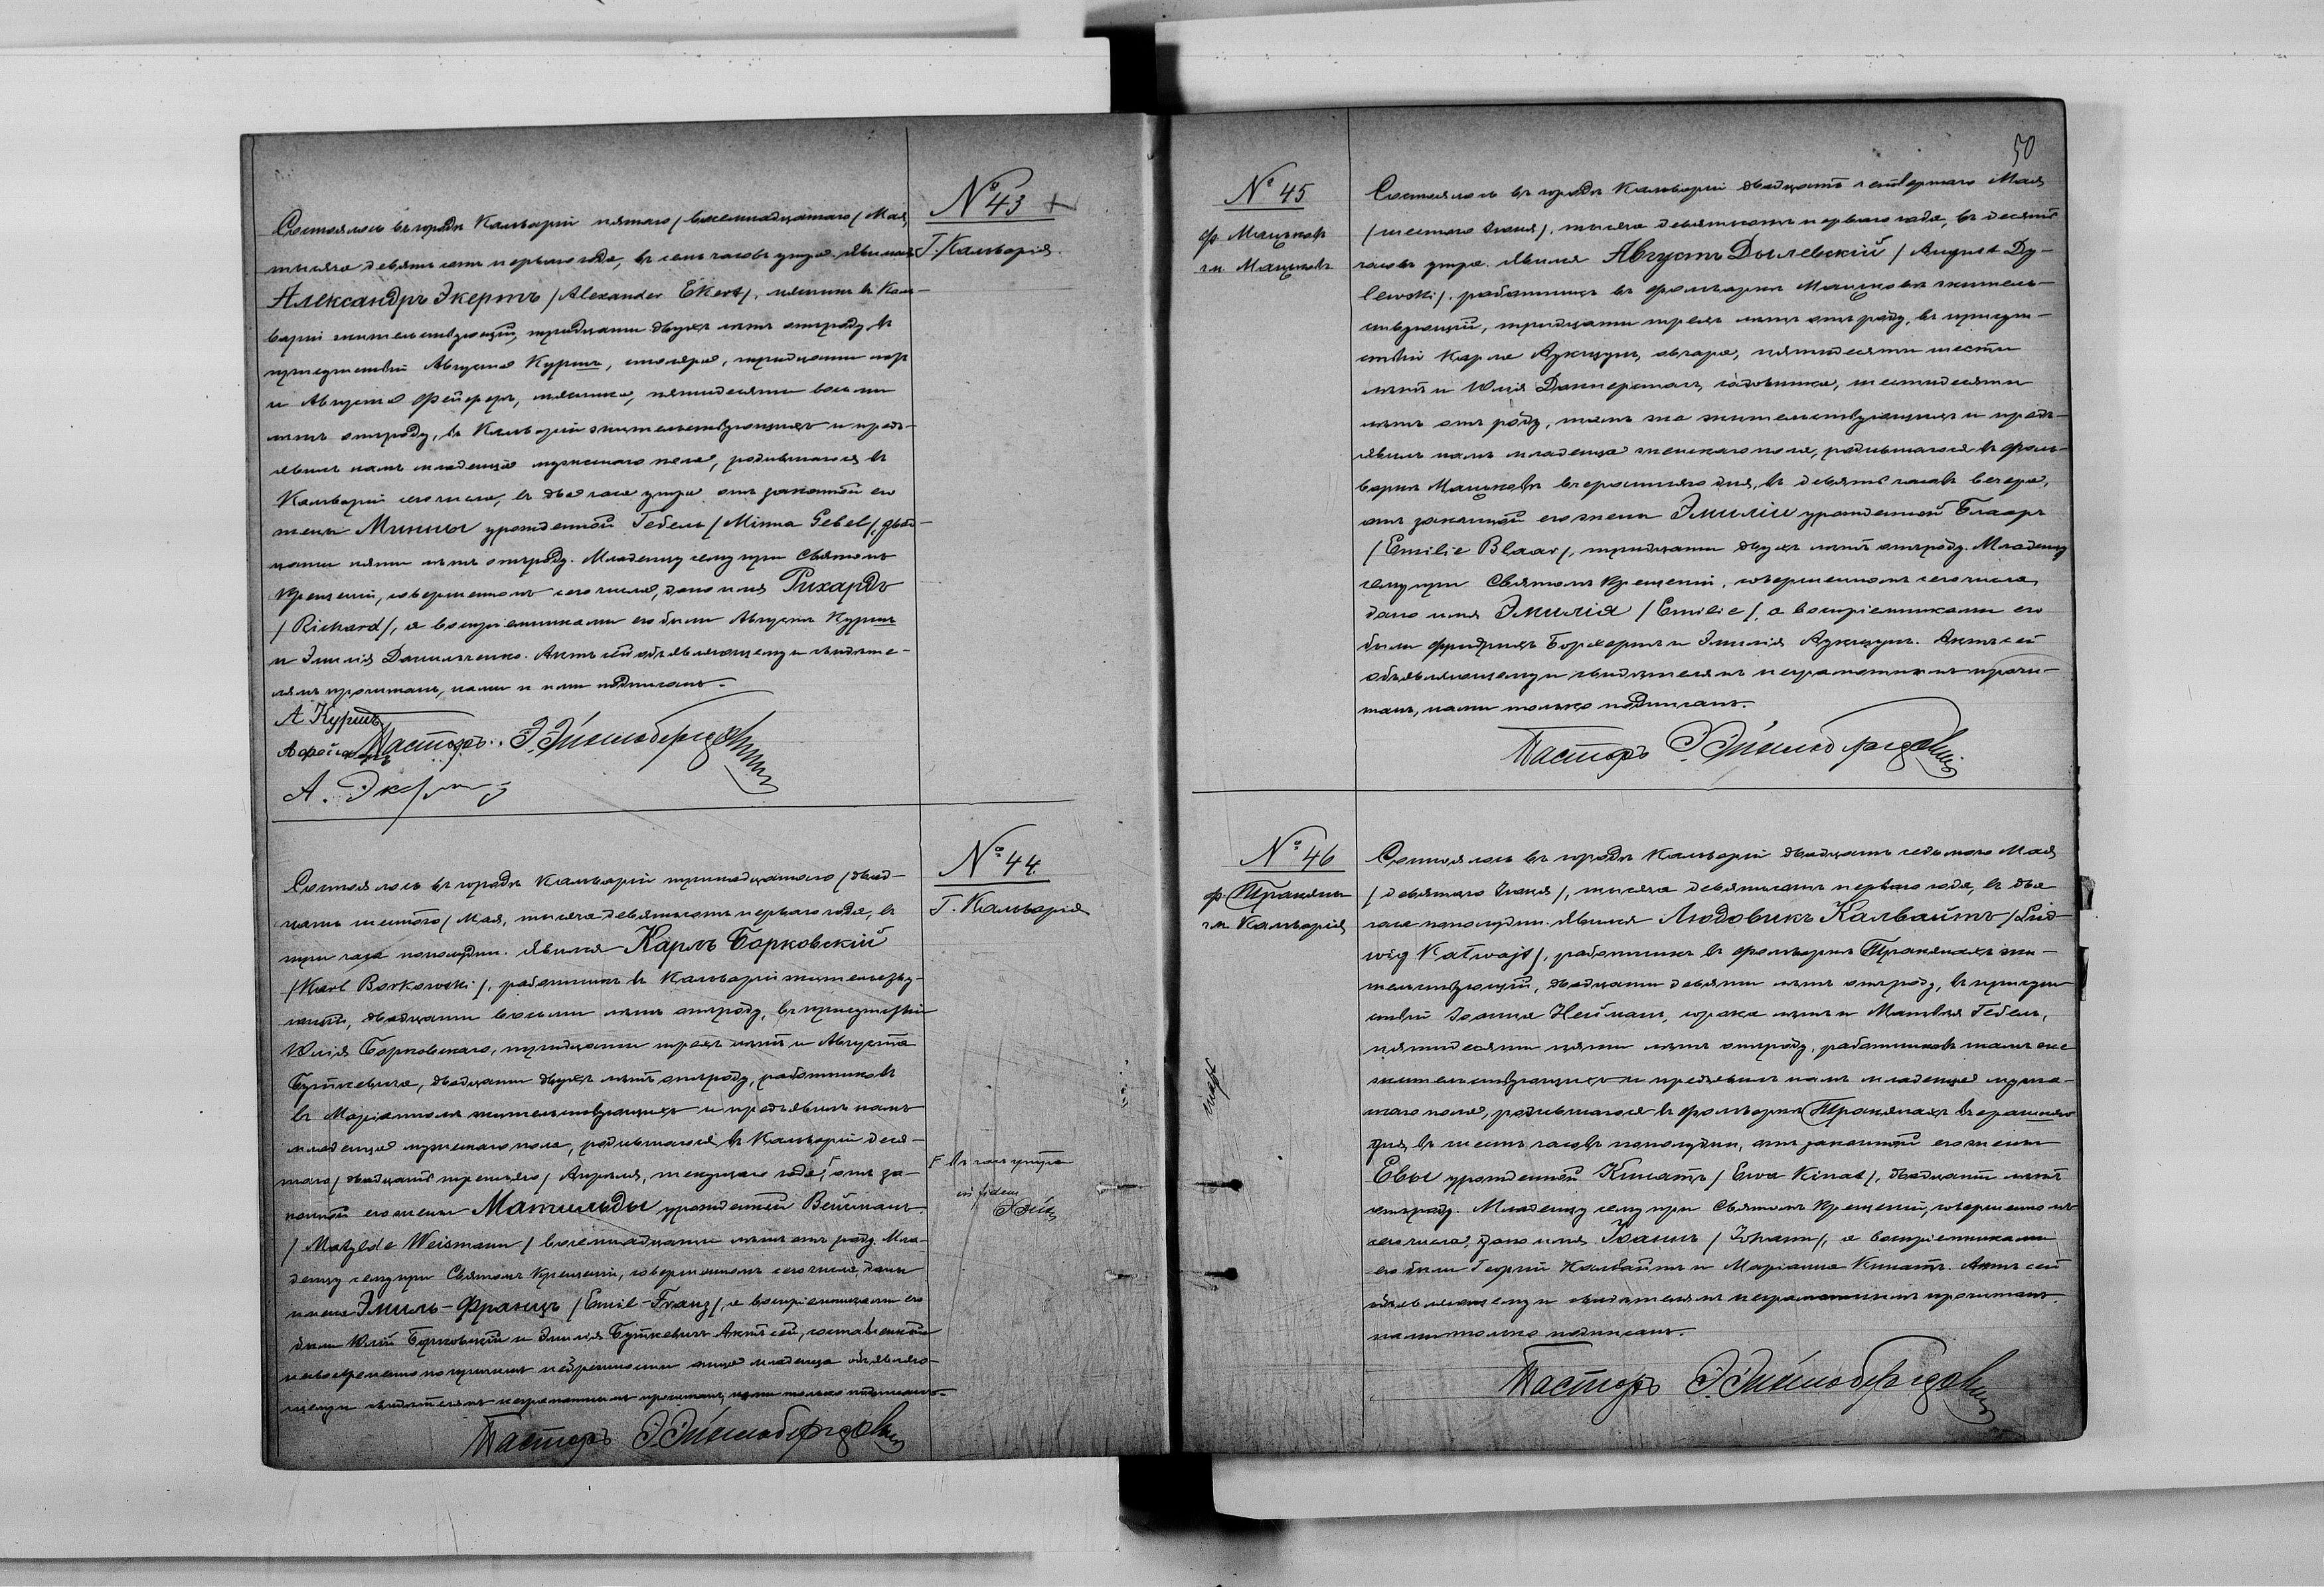 № 43 +
Г. Кальварія.
Состоялось въ городѣ Кальваріи пятаго /восемнадцатаго/ Мая,
тысяча девятьсотъ перваго года, въ семь часовъ утра. Явился
Александръ Экертъ /Alexander Ekert/, мясникъ въ Каль-
варіи жительствующій, тридцати двухъ лѣтъ отъ роду, въ
присутствіи Августа Куршъ, столяра, тридцати лѣтъ
и Августа Фейферъ, мясника, пятидесяти восьми
лѣтъ отъ роду, въ Кальваріи жительствующихъ и предъ-
явилъ намъ младенца мужескаго пола, родившагося въ
Кальваріи сего числа, въ два часа утра отъ законной его
жены Минны урожденной Гебель /Minna Gebel/, двад-
цати пяти лѣтъ отъ роду. Младенцу сему при Святомъ
Крещеніи, совершенномъ сего числа, дано имя Рихардъ
/Richard/, а воспріемниками его были Августъ Куршъ
и Эмилія Данильченко. Актъ сей объявляющему и свидѣте-
лямъ прочитанъ, нами и ими подписанъ.
А Куршъ
А Фейферъ Пасторъ
А. Экертъ
№ 44.
Г. Кальварія
Состоялось въ городѣ Кальваріи тринадцатаго /двад-
цать шестого/ Мая, тысяча девятьсотъ перваго года, въ
три часа пополудни. Явился Карлъ Борковскій
/Karl Borkowski/, работникъ въ Кальваріи жительству-
ющій, двадцати восьми лѣтъ отъ роду, въ присутствіи
Юлія Борковскаго, тридцати трехъ лѣтъ и Августа
Буткевича, двадцати двухъ лѣтъ отъ роду, работниковъ
въ Маріамполѣ жительствующихъ и предъявилъ намъ
младенца мужескаго пола, родившагося въ Кальваріи деся-
таго /двадцать третьяго/ Апрѣля, текущаго года, F отъ за-
конной его жены Матильды урожденной Вейсманъ
/Matylde Weismann/ восемнадцати лѣтъ отъ роду. Мла-
денцу сему при Святомъ Крещеніи, совершенномъ сего числа, даны
имена Эмиль-Францъ /Emil-Franz/, а воспріемниками его
были Юлій Борковскій и Эмилія Буткевичъ. Актъ сей, составленный
несвоевременно по причинѣ небрежности отца младенца объявляю-
щему и свидѣтелямъ неграмотнымъ прочитанъ, нами только подписанъ.
Пасторъ
F въ часъ утра
in fidem
50
№ 45
ф. Мацьковъ
гм. Мацьковъ
Состоялось въ городѣ Кальваріи двадцать четвертаго Мая
/шестого Іюня/, тысяча девятьсотъ перваго года, въ десять
часовъ утра. Явился Августъ Дылевскій /August Dy-
lewski/, работникъ въ фольваркѣ Мацьковъ житель-
ствующій, тридцати трехъ лѣтъ отъ роду, въ присут-
ствіи Карла, овчара, пятидесяти шести
лѣтъ и Юлія, садовника, шестидесяти
лѣтъ отъ роду, тамъ же жительствующихъ и предъ-
явилъ намъ младенца женскаго пола, родившагося въ фоль-
варкѣ Мацьковъ вчерашняго дня, въ девять часовъ вечера,
отъ законной его жены Эмиліи урожденной Блааръ
/Emilie Blaar/, тридцати двухъ лѣтъ отъ роду. Младенцу
сему при Святомъ Крещеніи, совершенномъ сего числа,
дано имя Эмилія /Emilie/, а воспріемниками его
были Фридрихъ и Эмилія. Актъ сей
объявляющему и свидѣтелямъ неграмотнымъ прочи-
танъ, нами только подписанъ.
Пасторъ
№ 46
ф. Траняны
гм. Кальварія
Состоялось въ городѣ Кальваріи двадцать седьмого Мая
/девятаго Іюня/, тысяча девятьсотъ перваго года, въ два
часа пополудни. Явился Людовикъ Калвайтъ /Lud-
wig Kalwajt/, работникъ въ фольваркѣ Транянахъ жи-
тельствующій, двадцати девяти лѣтъ отъ роду, въ присут-
ствіи Іоанна Нейманъ, сорока лѣтъ и Матвѣя Гебель,
пятидесяти пяти лѣтъ отъ роду, работниковъ тамъ же
жительствующихъ и предъявилъ намъ младенца муже-
скаго пола, родившагося въ фольваркѣ Транянахъ вчерашняго
дня, въ шесть часовъ пополудни, отъ законной его жены
Евы урожденной Кинатъ /Ewa Kinat/, двадцати лѣтъ
отъ роду. Младенцу сему при Святомъ Крещеніи, совершенномъ
сего числа, дано имя Іоаннъ /Johann/, а воспріемниками
его были Георгій Калвайтъ и Маріанна Кинатъ. Актъ сей
объявляющему и свидѣтелямъ неграмотнымъ прочитанъ,
нами только подписанъ.
Пасторъ